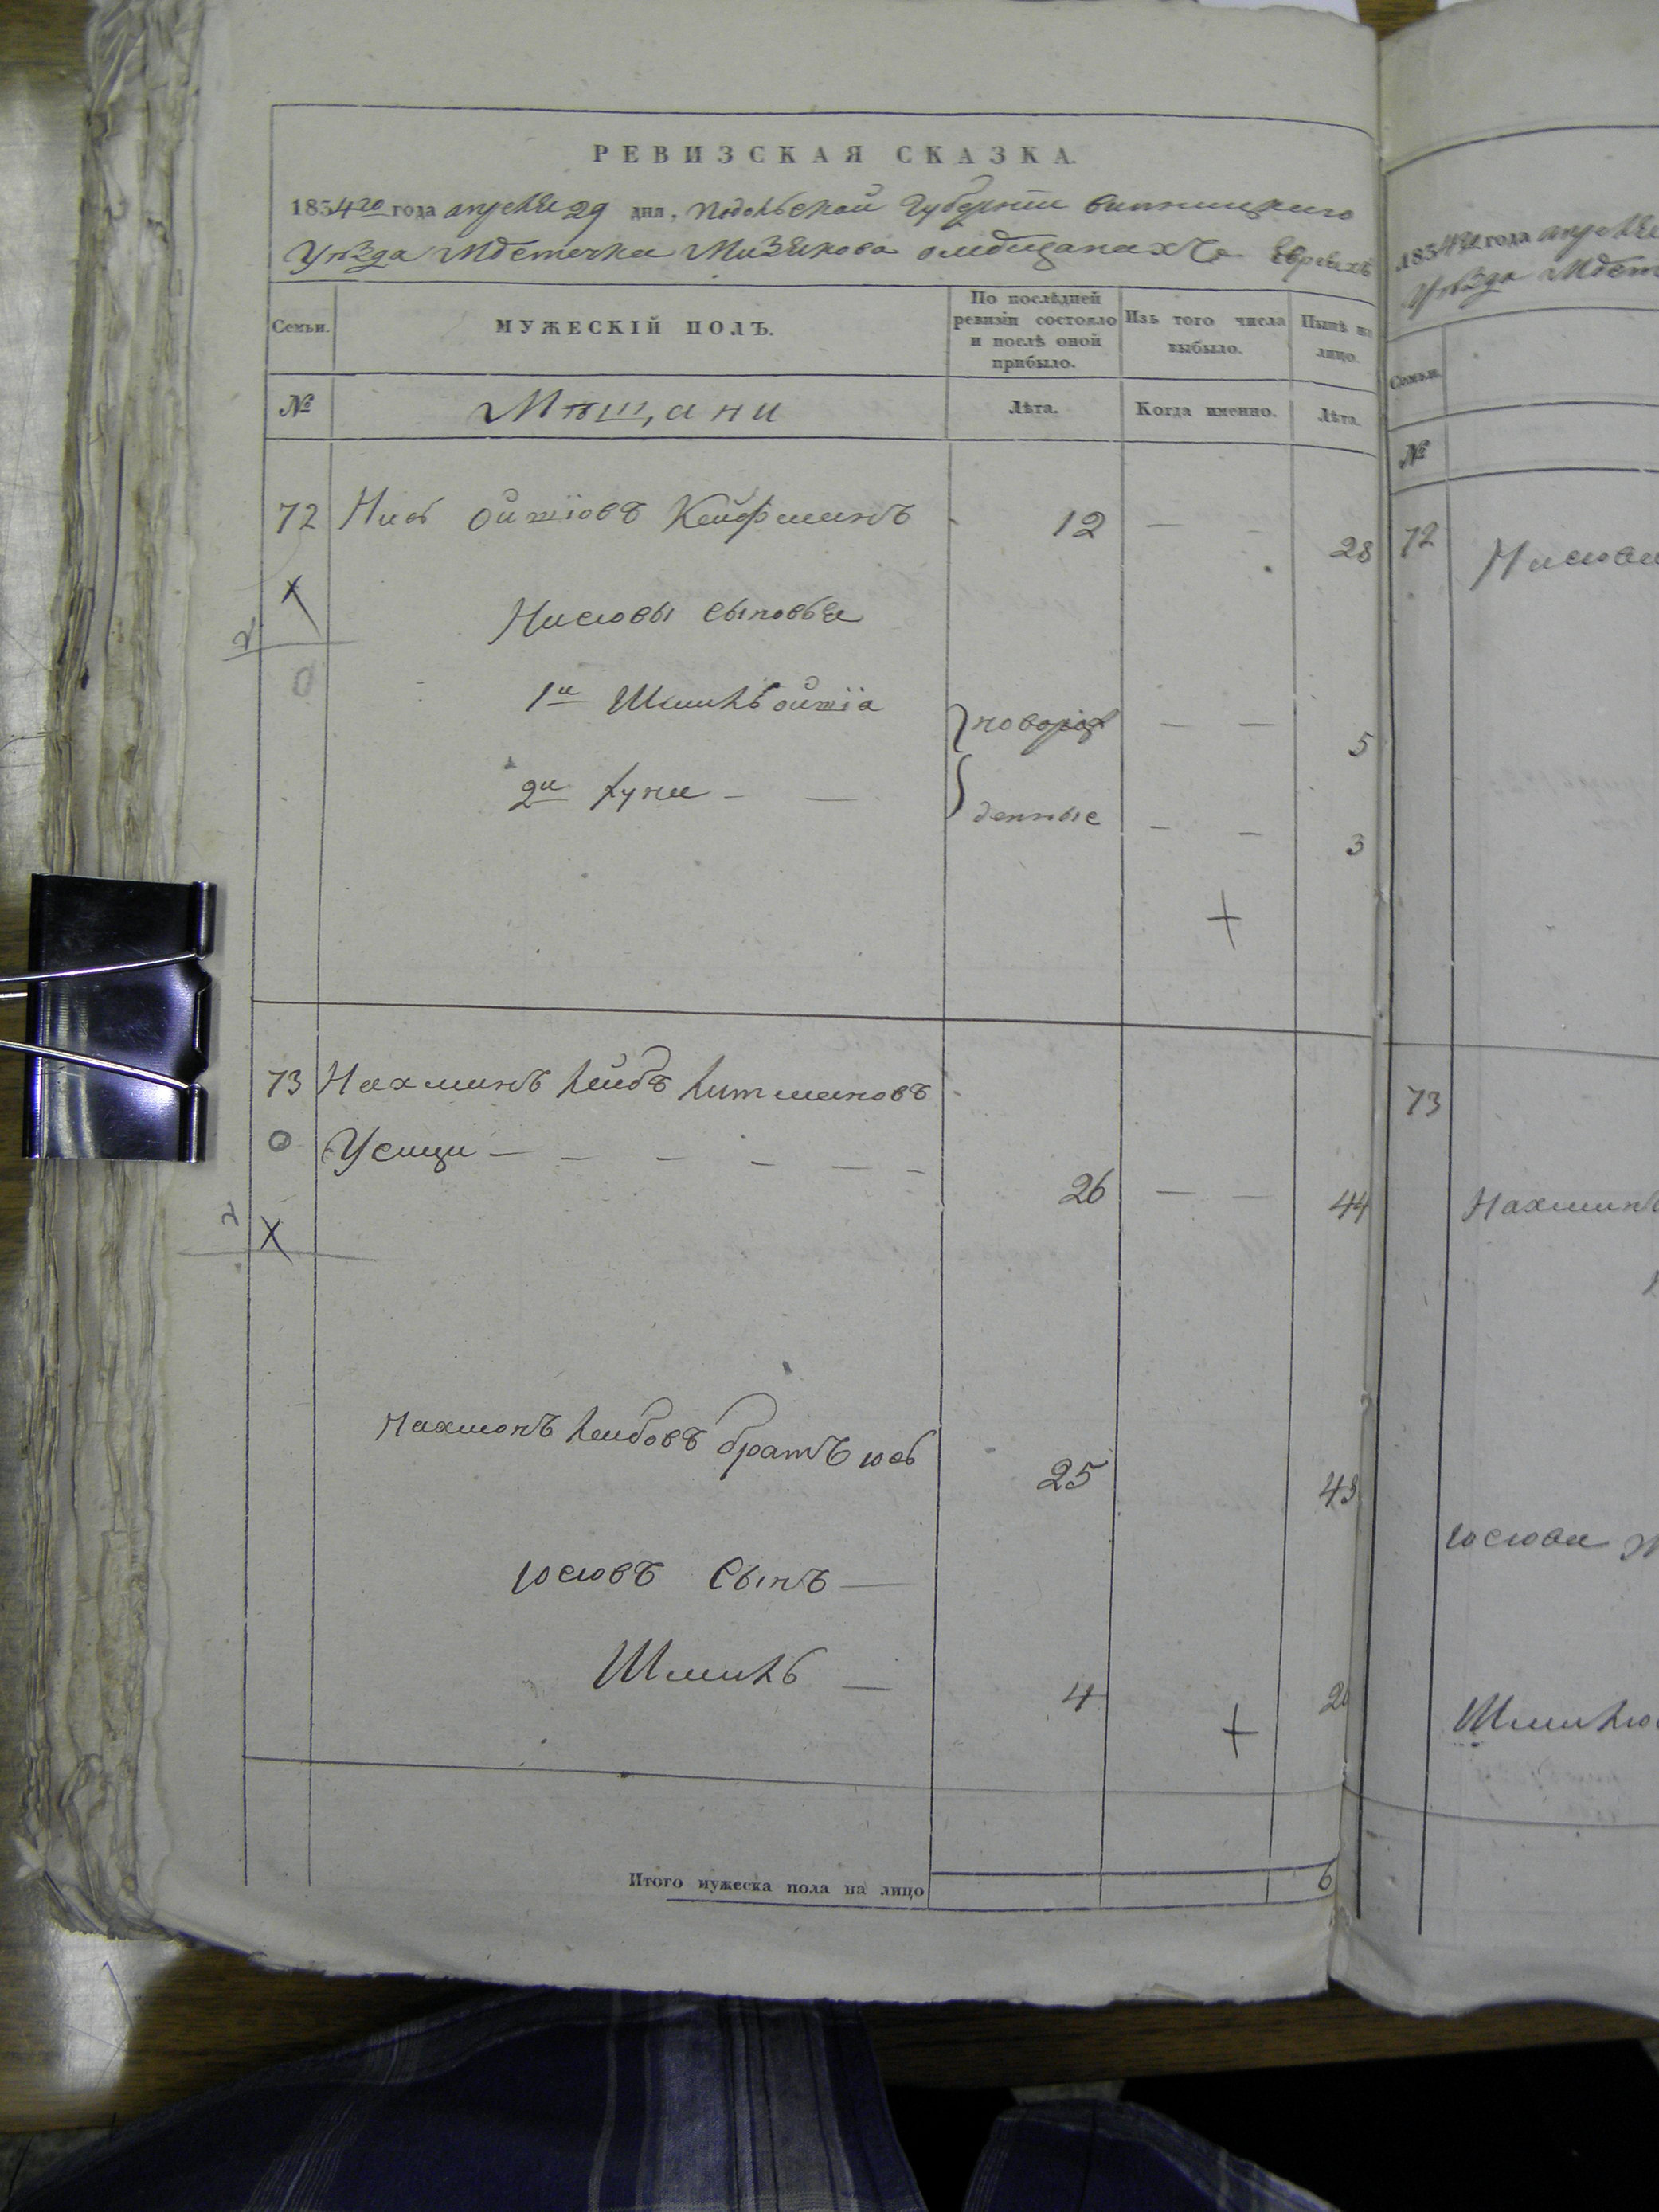 РЕВИЗСКАЯ СКАЗКА.
1854го года апреля 29 дня, Подольской Губернии Винницкого
Уезда Местечка Мизякова омещанахъ Евреяхъ
Семьи.
МУЖЕСКІЙ ПОЛЪ.
По послѣдней ревизіи состояло и послѣ оной прибыло.
Изъ того числа выбыло.
Нынѣ на лицо.
№
Мѣщани
Лѣта.
Когда именно.
Лѣта.
72 Нись Кейфманъ 12 — — 28
Нисювы сыновья
1й Шмиль 5
новорож
2й — — 3
денные
73 Нахманъ Лейбъ Литмановъ
Усищи — — — — — — 26 — — 44
Нахманъ Лейбовъ братъ Юсь 25 43
Юсювъ Сынъ —
Шмиль — 4
Итого мужеска пола на лицо 6
1854го года апреля
Уѣзда
Семьи.
№
72
73
Нахманъ
Юсюва